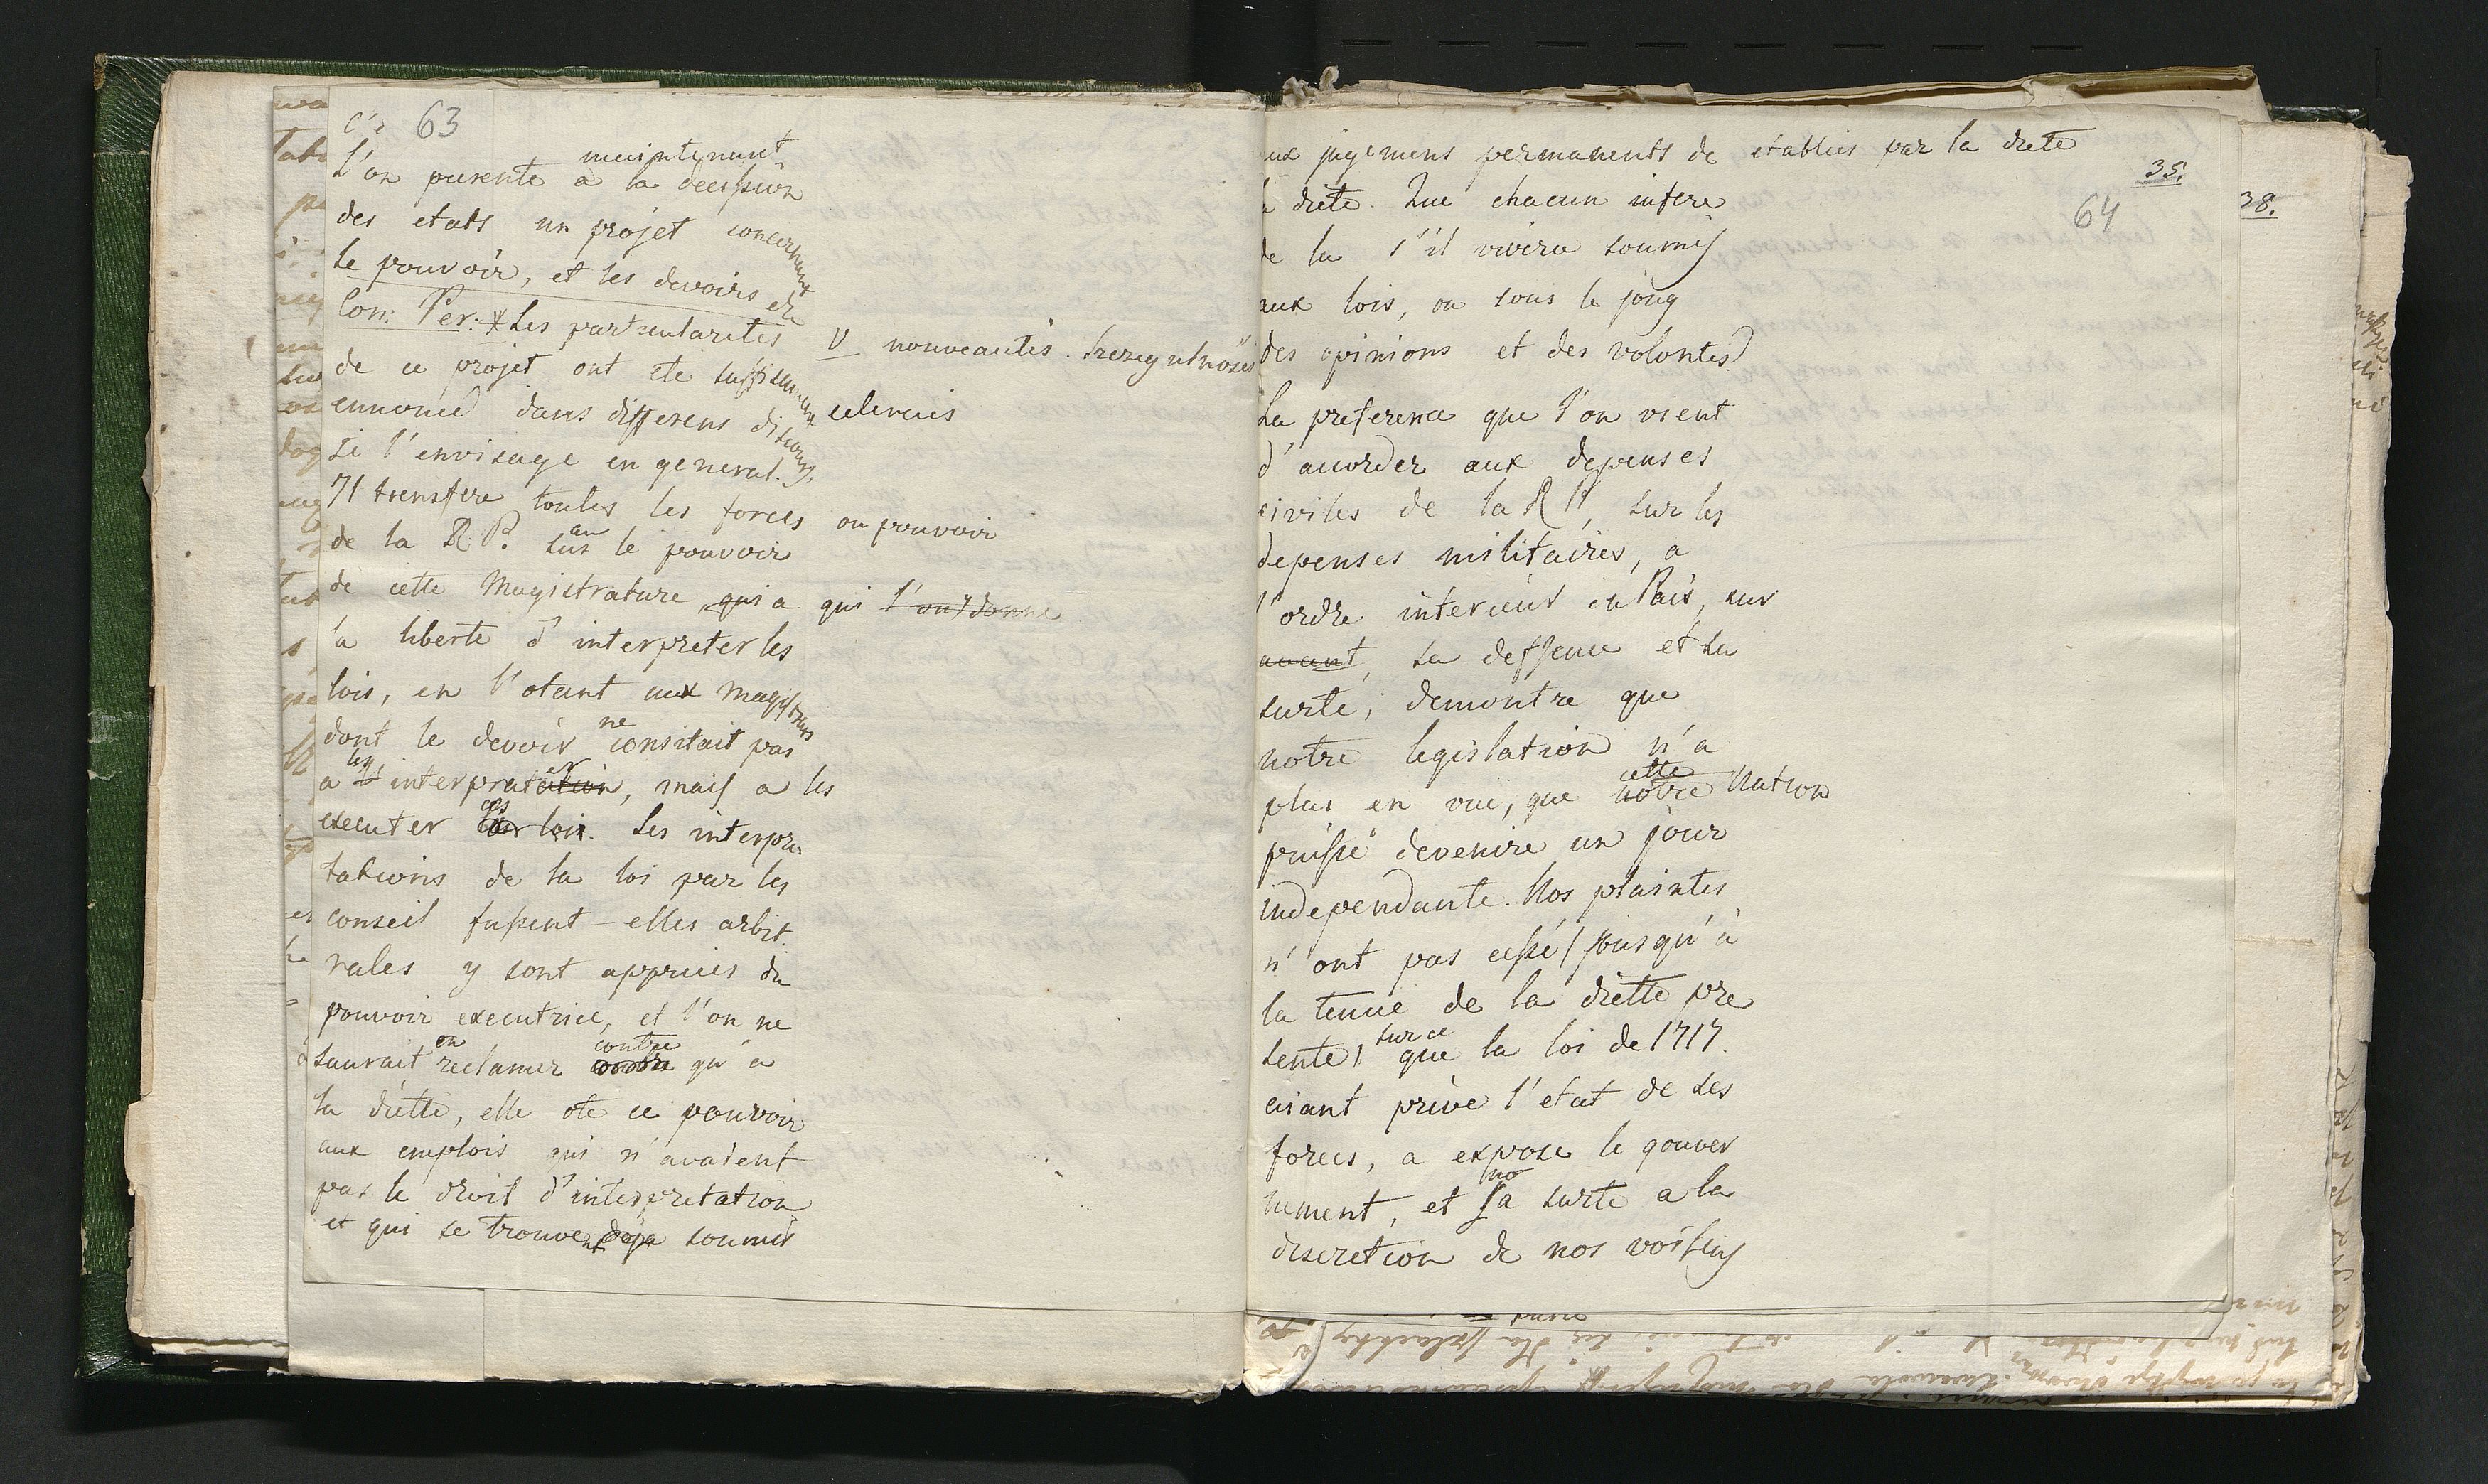 c'e 63
maintenant
L'on presente à la decission
des etats un projet concernant
le pouvoir, et les devoirs du
Con: Per: Les particularites
V nouveautés.
de ce projet ont ete suffisamment
ennoncé dans differens discours.
si l'envisage en general.
Il transfere toutes les forces ou pouvoir
de la R. P. sur au le pouvoir
de cette Magistrature qui a qui l'on donne
la liberte d'interpreter les
lois, en l'otant aux Magistrats
dont le devoir ne consitait pas
a les interpretation, mais a les
executer ces loix. Les interpre
tations de la loi par les
conseil fussent-elles arbit
rales y sont appuies du
pouvoir executrice, et l'on ne
saurait en reclamer contre qu'a
la diette, elle ote ce pouvoir
aux emplois qui n'avaient
pas le droit d'interpretation
et qui se trouvent deja soumis
aux jugemens permanents de etablies par la diete
35.
64
38.
la diete. Que chacun infere
de la s'il vivera soumis
aux lois, ou sous le joug
des opinions et des volontes?
La preference que l'on vient
d'accorder aux depenses
civiles de la R P, sur les
depenses militaires, a
l'ordre interieur du Païs, sur
avant, sa deffence et sa
surte, demontre que
notre legislation n'a
plus en vuë, que notre cette Nation
puisse devenire un jour
independante. Nos plaintes
n'ont pas cessé / jusqu'à
la tenue de la diette pre
sente / sur ce que la loi de 1717.
aiant privé l'etat de ses
forces, a expose le gouver
nement, et sa surte a la
discretion de nos voisins